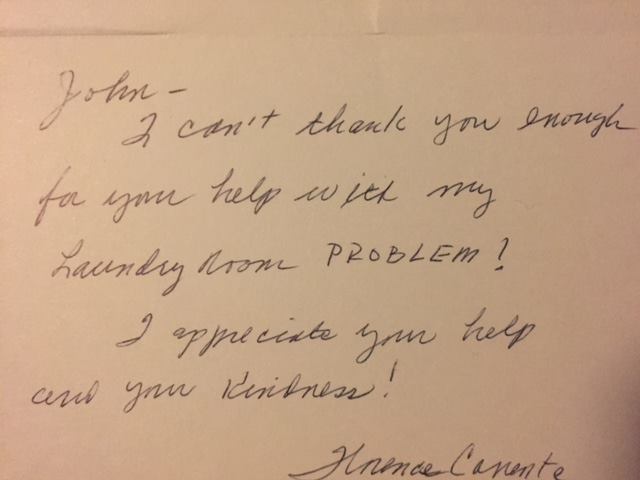 John -
I can't thank you enough
for your help with my
Laundry Room PROBLEM!
I appreciate your help
and your kindness!
Florence